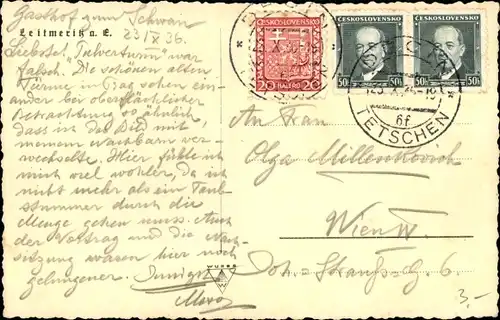 Gasthof zum Schwan
Leitmeritz a. E.
23/X 36.
Liebste! "Pulverturm" war
falsch. Die schönen alten
Türme in Prag sehen ein-
ander bei oberflächlicher
Betrachtung so ähnlich,
dass ich das Bild mit
meinem wachbaren ver-
wechselte. Hier fühle ich
mich viel wohler, da ich
nicht mehr als ein Taub-
stummer durch die
Menge gehen muss. Auch
der Vortrag und die Nach-
sitzung waren hier noch
gelungener. Innigst
ČESKOSLOVENSKO
20 HALÉŘŮ 20
ČESKOSLOVENSKO
50h 50h
ČESKOSLOVENSKO
50h 50h
TETSCHEN
6f
An Frau
Olga Millenkovich
Wien IV.
Joh.-Strauß-G. 6
3,-